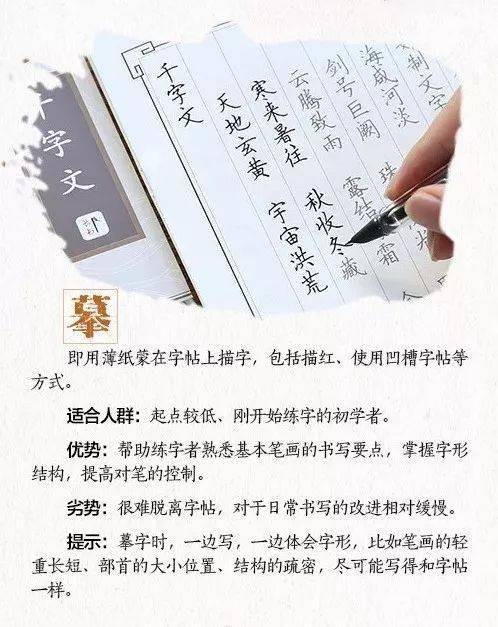 制文字
海咸河淡
剑号巨阙 珠 光
云腾致雨 露结 霜
寒来暑往 秋收冬藏
天地玄黄 宇宙洪荒
千字文
千字文
摹
即用薄纸蒙在字帖上描字，包括描红、使用凹槽字帖等
方式。
适合人群：起点较低、刚开始练字的初学者。
优势：帮助练字者熟悉基本笔画的书写要点，掌握字形
结构，提高对笔的控制。
劣势：很难脱离字帖，对于日常书写的改进相对缓慢。
提示：摹字时，一边写，一边体会字形，比如笔画的轻
重长短、部首的大小位置、结构的疏密，尽可能写得和字帖
一样。